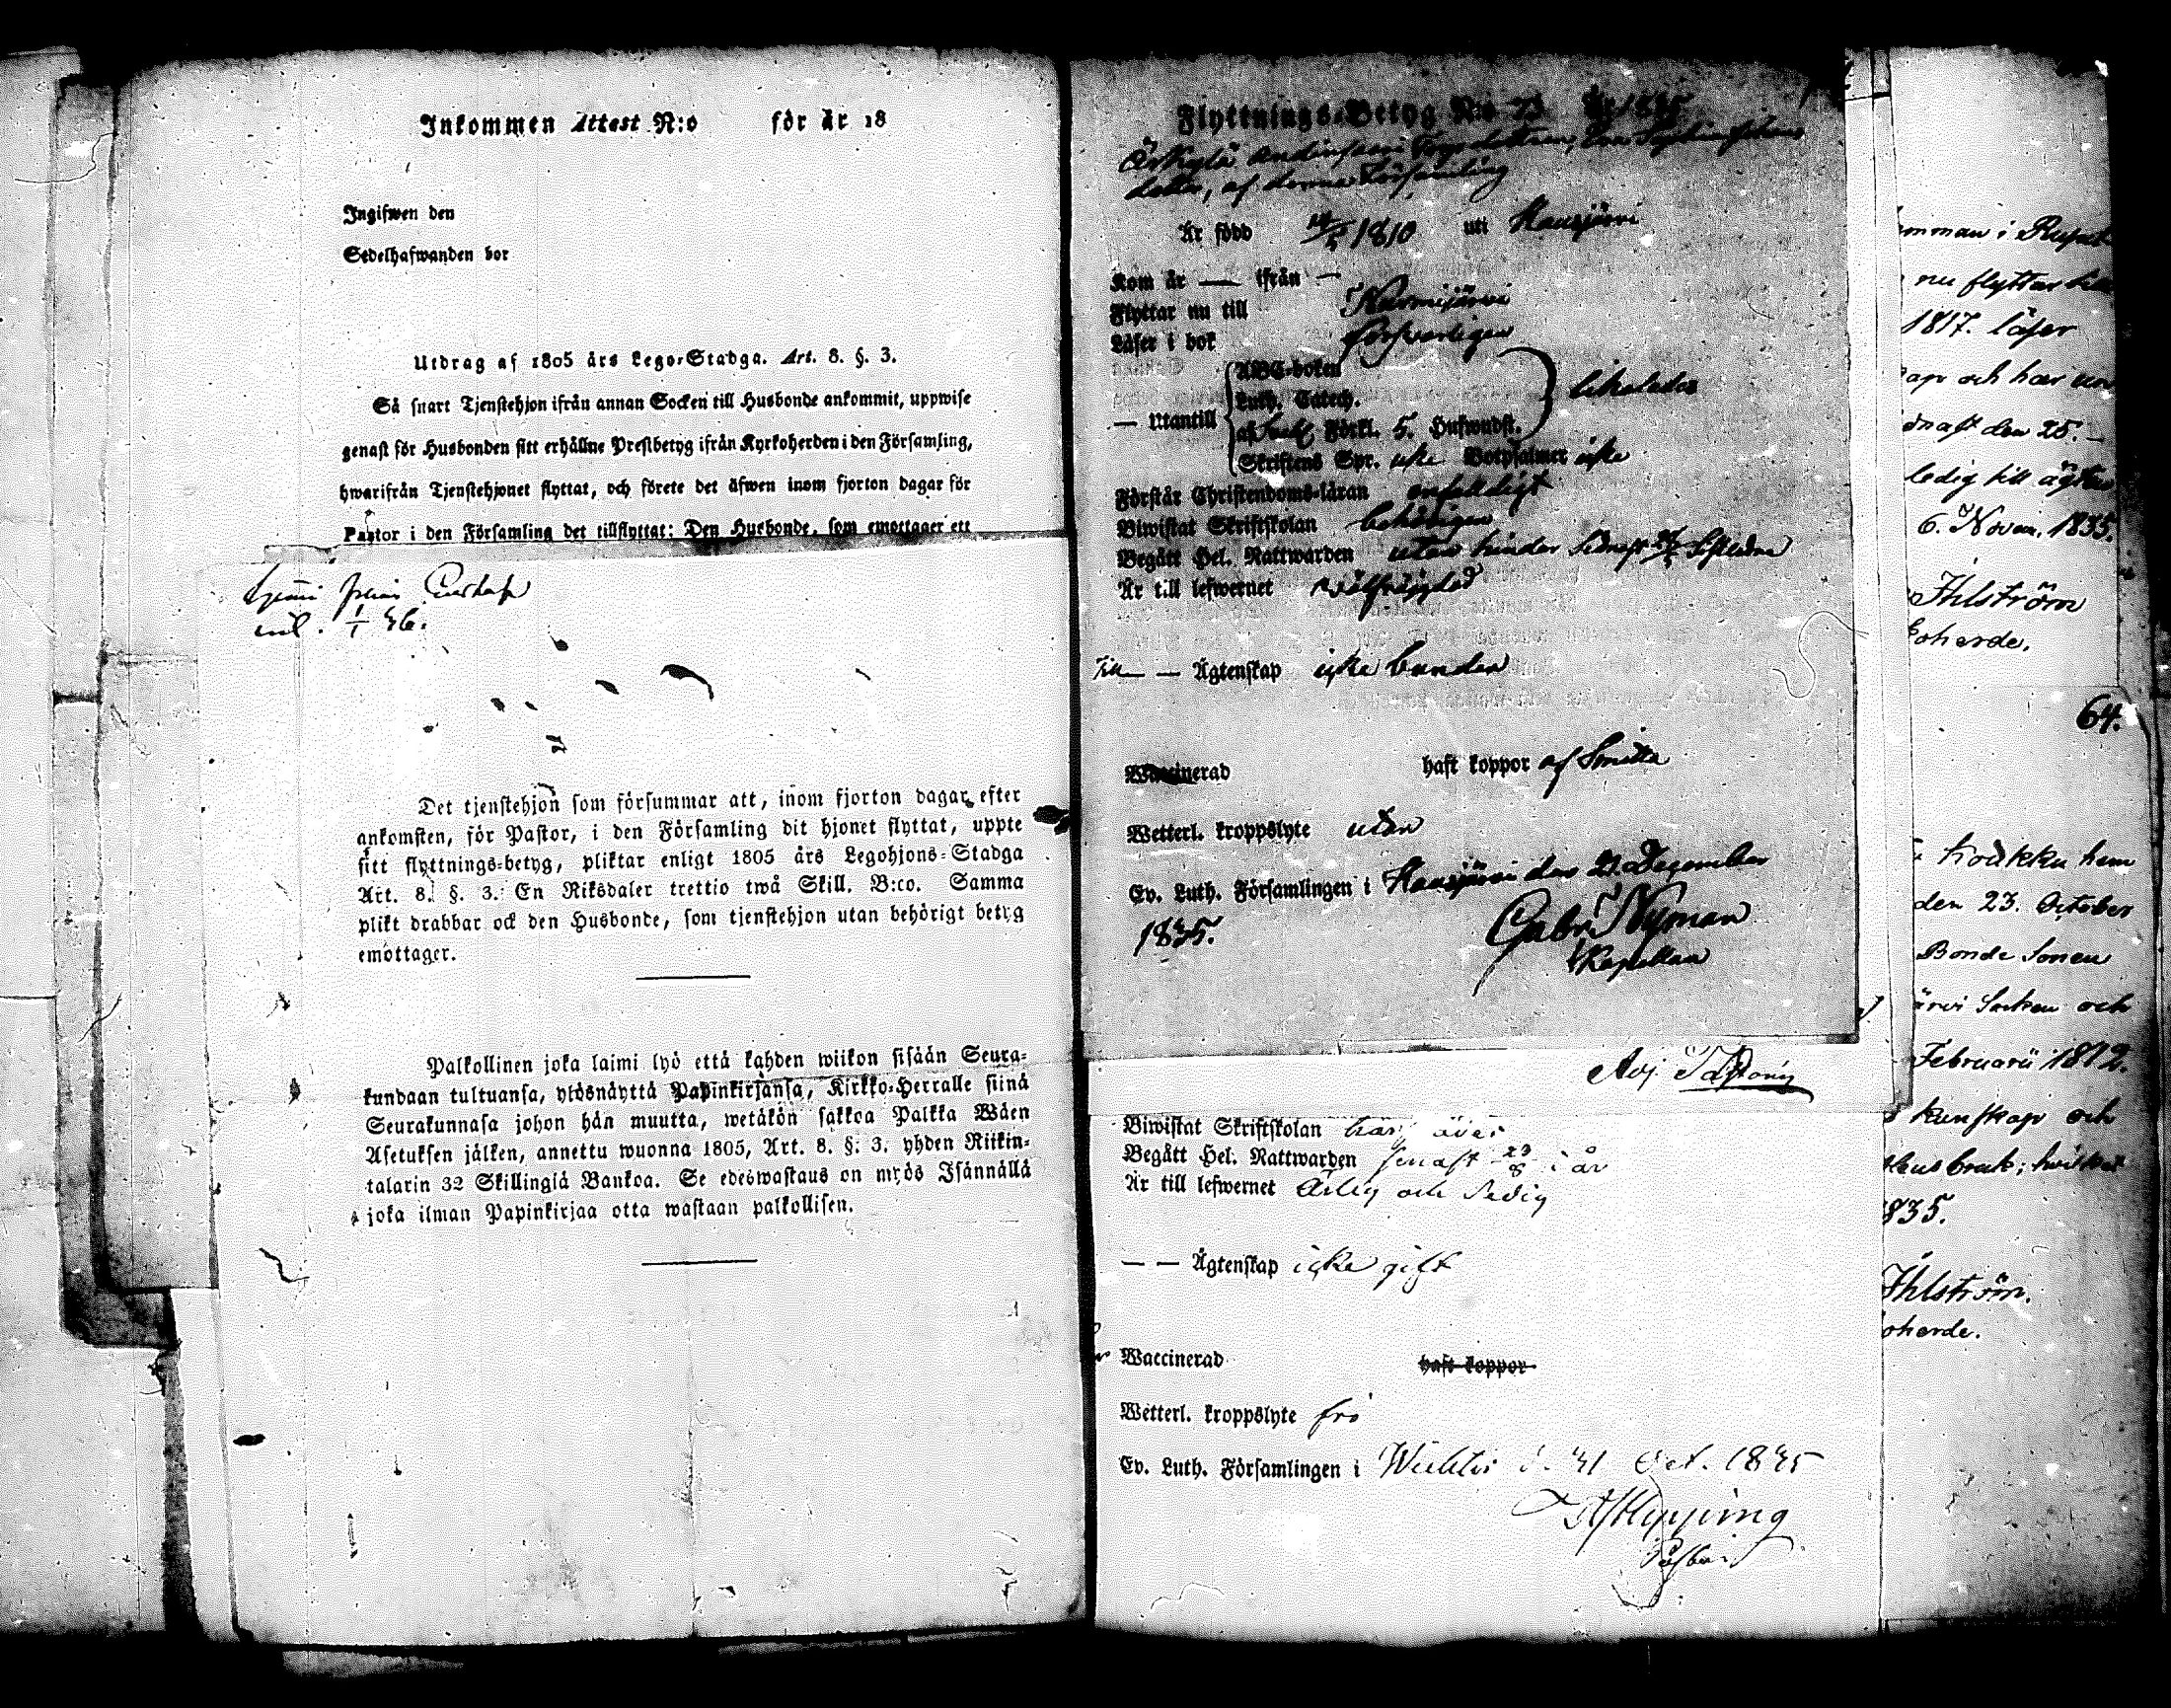 Inkommen Attest N:o för år 18
Ingifwen den
Sedelhafwanden bor
Utdrag af 1805 års Lego-Stadga. Art. 8. §. 3.
Så snart Tjenstehjon ifrån annan Socken till Husbonde ankommit, uppwise
genast för Husbonden sitt erhållne Prestbetyg ifrån Kyrkoherden i den Församling,
hwarifrån Tjenstehjonet flyttat, och förete det äfwen inom fjorton dagar för
Pastor i den Församling det tillflyttat; Den Husbonde, som emottager ett
36.
Det tjenstehjon som försummar att, inom fjorton dagar efter
ankomsten, för Pastor, i den Församling dit hjonet flyttat, uppte
sitt flyttnings-betyg, pliktar enligt 1805 års Legohjons-Stadga
Art. 8. §. 3. En Riksdaler trettio twå Skill. B:co. Samma
plikt drabbar ock den Husbonde, som tjenstehjon utan behörigt betyg
emottager.
Palkollinen joka laimi lyö että kahden wiikon sisään Seura-
kundaan tultuansa, ylösnäyttä Papinkirjansa, Kirkko-Herralle siinä
Seurakunnasa johon hän muutta, wetäkön sakkoa Palkka Wäen
Asetuksen jälken, annettu wuonna 1805, Art. 8. §. 3. yhden Riikin-
talarin 32 Skillingiä Bankoa. Se edeswastaus on myös Isännällä
joka ilman Papinkirjaa otta wastaan palkollisen.
Flyttnings-Betyg N:o 73 År 1835
dotter, af denna Församling
Är född 1810 uti Hausjärvi
Kom år — ifrån —
Flyttar nu till Nurmijärvi
Läser i bok försvarligen
— Utantill
ABC-boken
Luth. Catech.
Förkl. 5. Hufwudst.
likaledes
Skriftens Spr. icke Botpsalmer icke
Förstår Christendoms-läran enfaldigt
Biwistat Skriftskolan behörigen
Begått Hel. Nattwarden utan hinder sednast
Är till lefwernet wälfrägdad
Till — — Ägtenskap icke bunden
Waccinerad haft koppor af Smitta
Wetterl. kroppslyte utan
Ev. Luth. Församlingen i Hausjärvi den 21 December
1835.
Gabr. Nyman
Kapellan
Biwistat Skriftskolan
Begått Hel. Nattwarden senast 23/8 i år
Är till lefwernet Ärlig och Sedig
— — Ägtenskap icke gift
Waccinerad haft koppor
Wetterl. kroppslyte fri
Ev. Luth. Församlingen i Wichtis d. 31 Oct. 1835
nu flyttar till
1817. läser
och har
den 25. —
ledig till ägten
6. Novem. 1835.
Ihlström
oherde.
64.
den 23. October
Bonde Sonen
ärvi Socken och
Februarii 1812.
kunskap och
835.
Ihlström.
oherde.